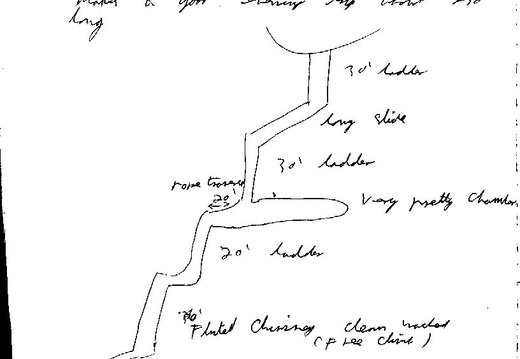 long
30' ladder
long slide
30' ladder
rope traverse
20'
Very pretty chamber
20' ladder
Fluted Chimney clean washed
(free climb)